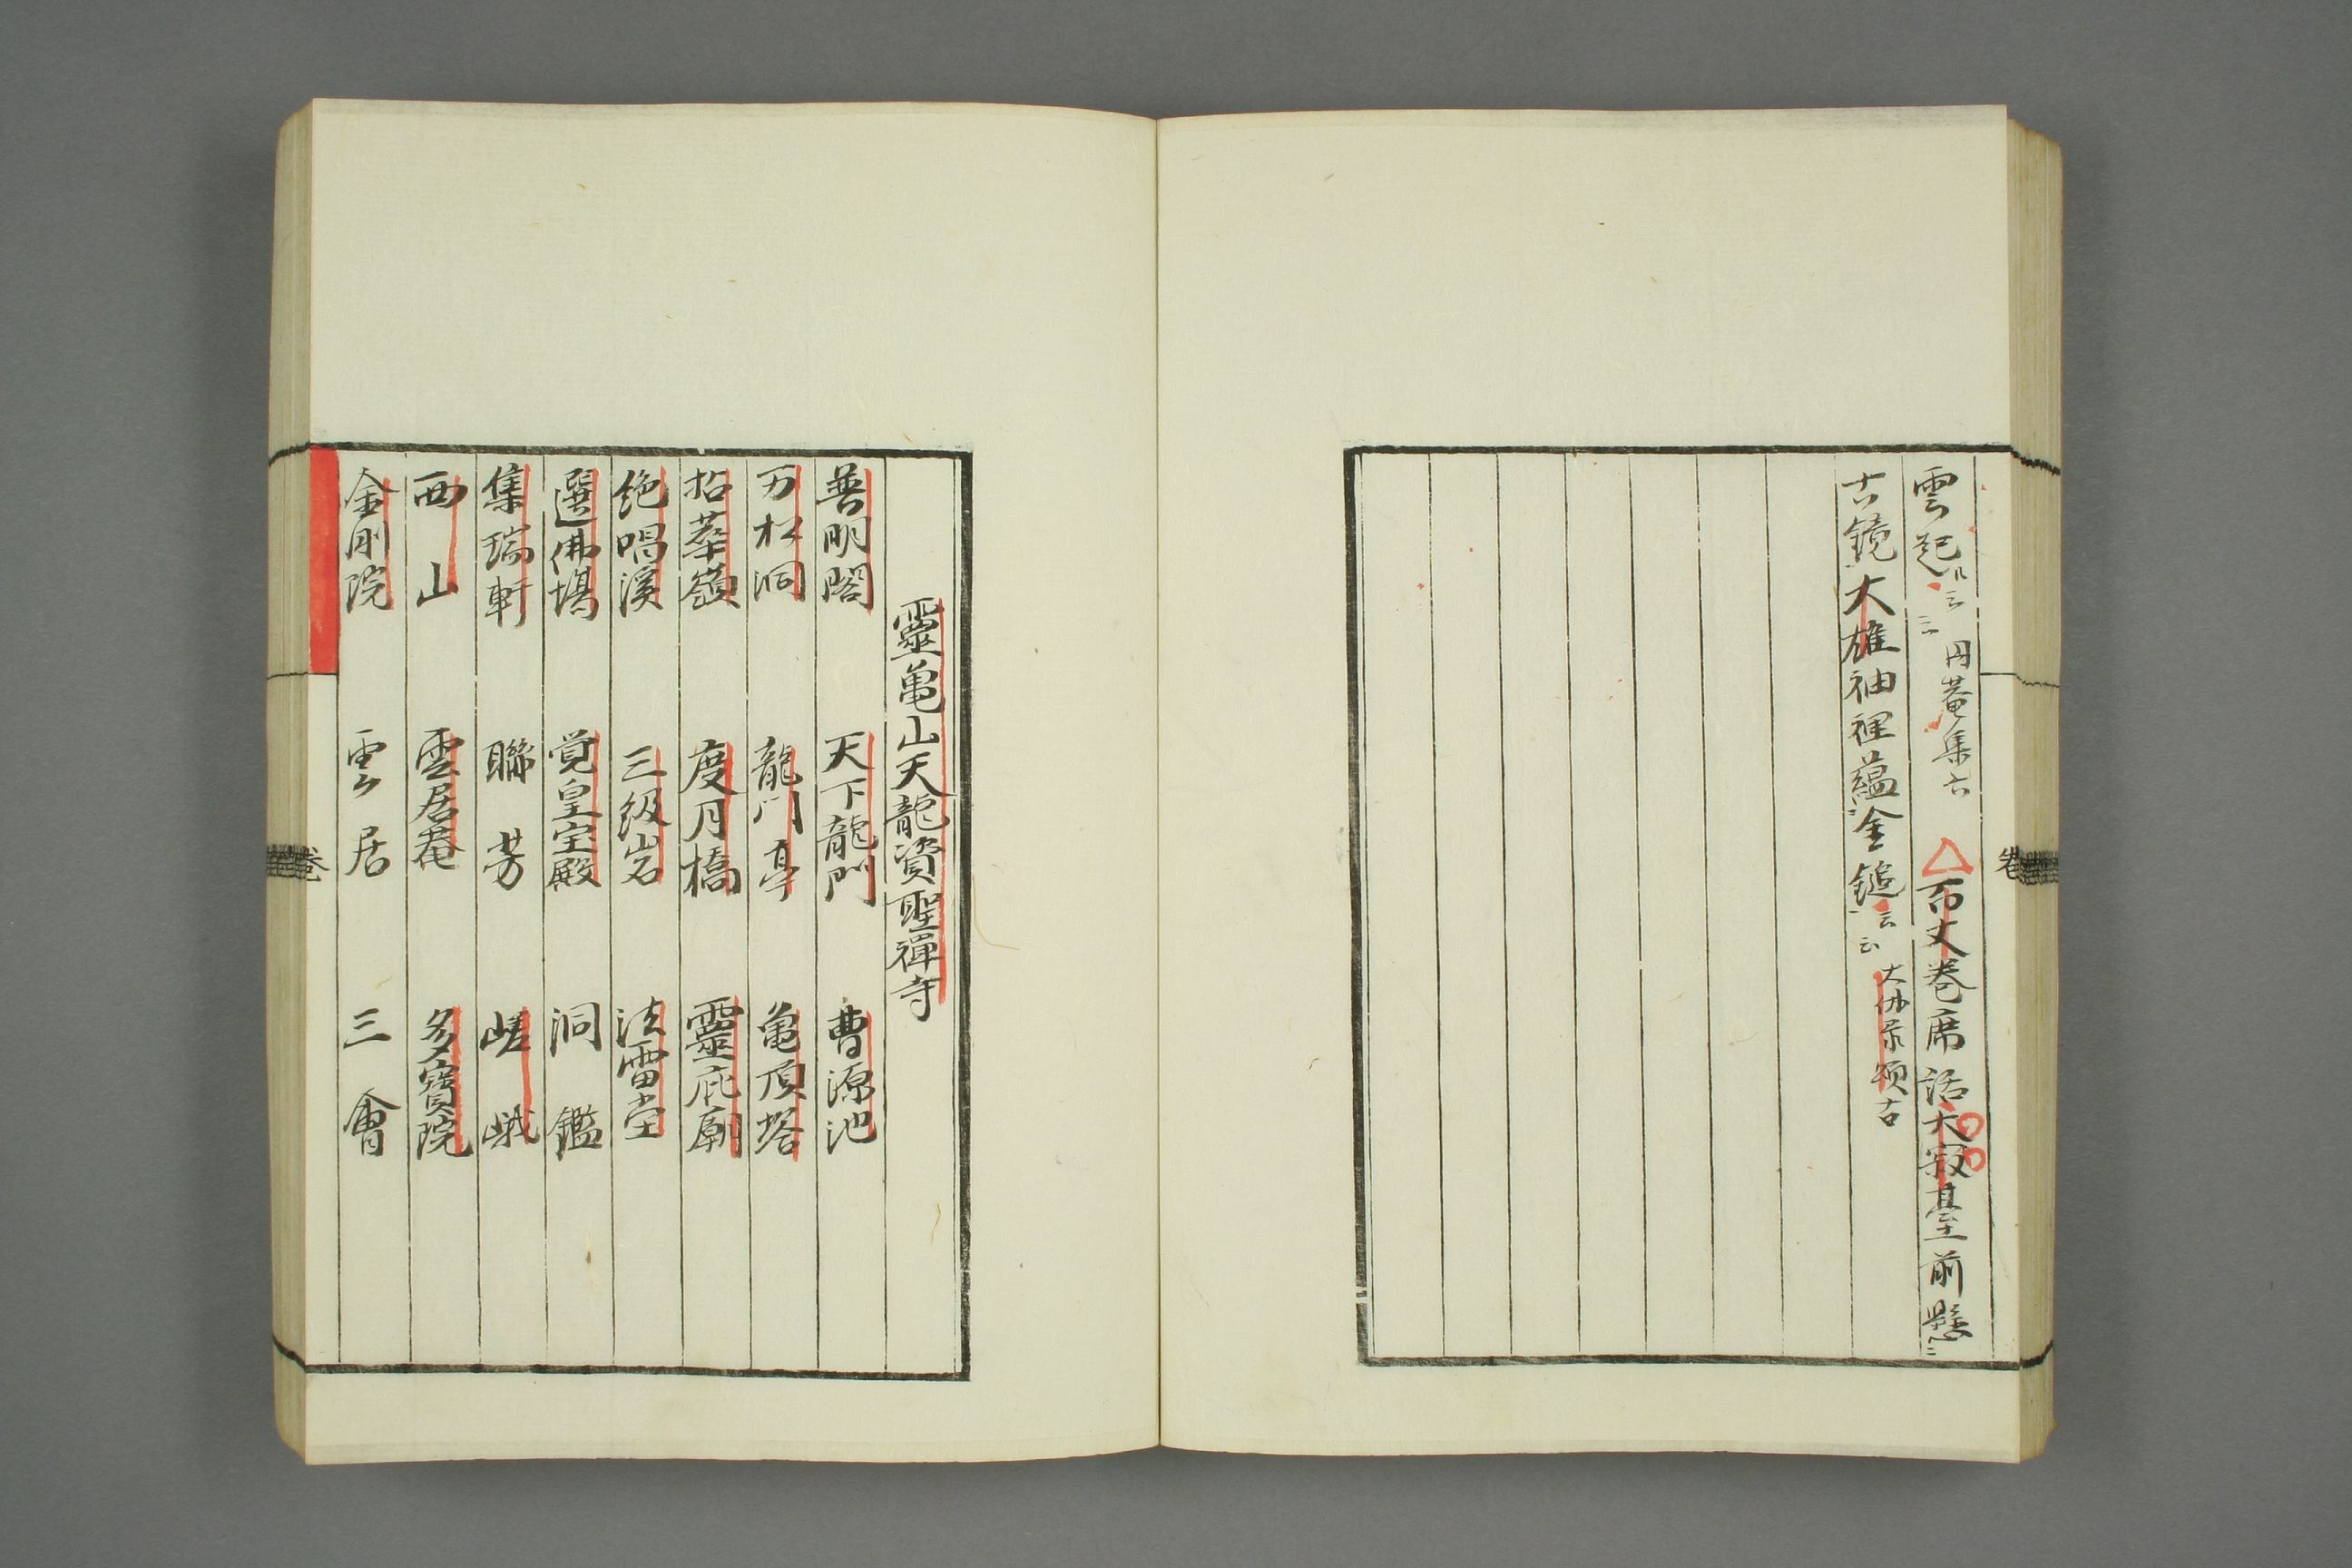 雲起云云円菴集六△百丈巻席話大寂臺前懸
古鏡大雄袖裡蘊金鎚云云大仏录頌古
卷
靈亀山天龍資聖禪寺
普明閣 天下龍門 曹源池
万松洞 龍門亭 亀頂塔
拈華嶺 度月橋 靈庇廟
絶唱溪 三級岩 法雷堂
選佛場 覚皇宝殿 洞鑑
集瑞軒 聯芳 嵯峨
西山 雲居菴 多寶院
金剛院 雲居 三會
卷